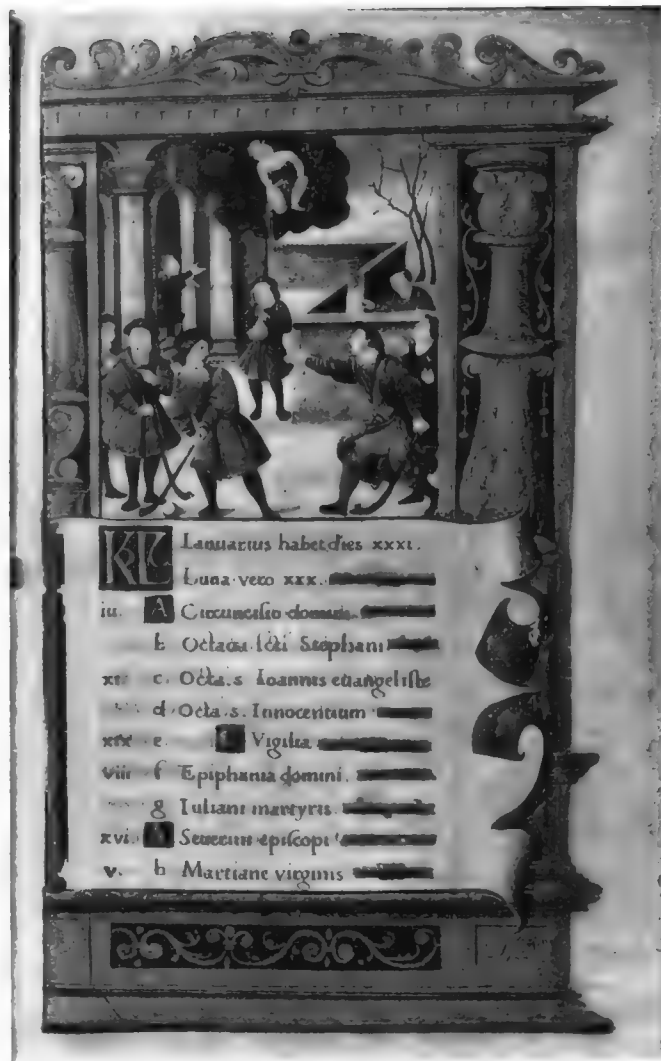 KL Ianuarius habet dies xxxi.
Luna vero xxx.
iii. A Circuncisio domini.
b Octava scti Stephani
c. Octa. s Ioannis euangeliste
d Octa. s. Innocentium
xix e Vigilia
viii f Epiphania domini.
g Iuliani martyris.
xvi. Seuerini episcopi
v. b Martiane virginis